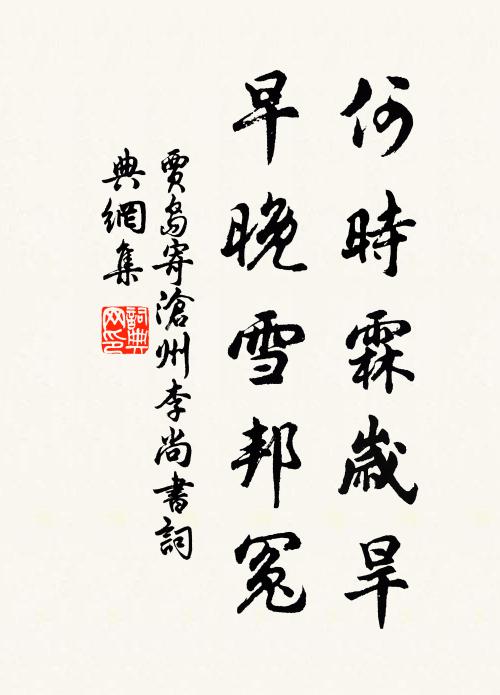 何時霖歲旱
早晚雪邦冤
賈島寄滄州李尚書詞
典網集
詞典网印